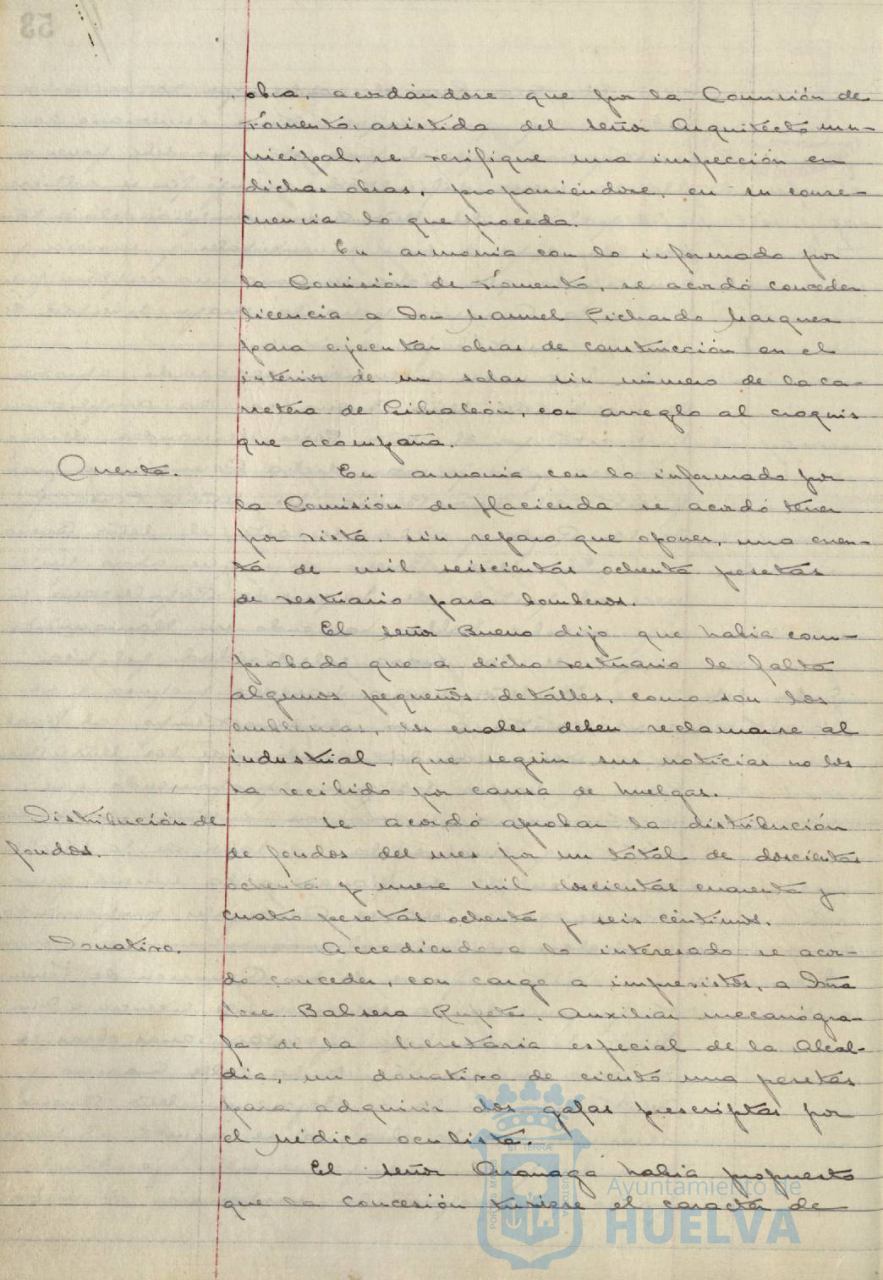 obra, acordándose que por la Comisión de
Fomento, asistida del señor Arquitecto mu-
nicipal, se verifique una inspección en
dichas obras, proponiéndose, en su conse-
cuencia lo que proceda.
En armonía con lo informado por
la Comisión de Fomento, se acordó conceder
licencia a Don Manuel Pichardo Marquez
para ejecutar obras de construcción en el
interior de un solar sin número de la ca-
rretera de Gibraleón, con arreglo al croquis
que acompaña.
Cuenta.
En armonía con lo informado por
la Comisión de Hacienda se acordó tener
por vista, sin reparo que oponer, una cuen-
ta de mil seiscientas ochenta pesetas
de vestuario para bomberos.
El señor Bueno dijo que había com-
probado que a dicho vestuario le falta
algunos pequeños detalles, como son los
emblemas, los cuales deben reclamarse al
industrial, que según sus noticias no los
ha recibido por causa de huelgas.
Distribución de
fondos.
Se acordó aprobar la distribución
de fondos del mes por un total de doscientas
ochenta y nueve mil doscientas cuarenta y
cuatro pesetas ochenta y seis céntimos.
Donativo.
Accediendo a lo interesado se acor-
dó conceder, con cargo a imprevistos, a Doña
Balsera Auxiliar mecanógra-
fa de la Secretaría especial de la Alcal-
día, un donativo de ciento una pesetas
para adquirir dos gafas prescriptas por
el médico oculista.
El señor había propuesto
que la concesión tuviese el caracter de
Ayuntamiento de
HUELVA